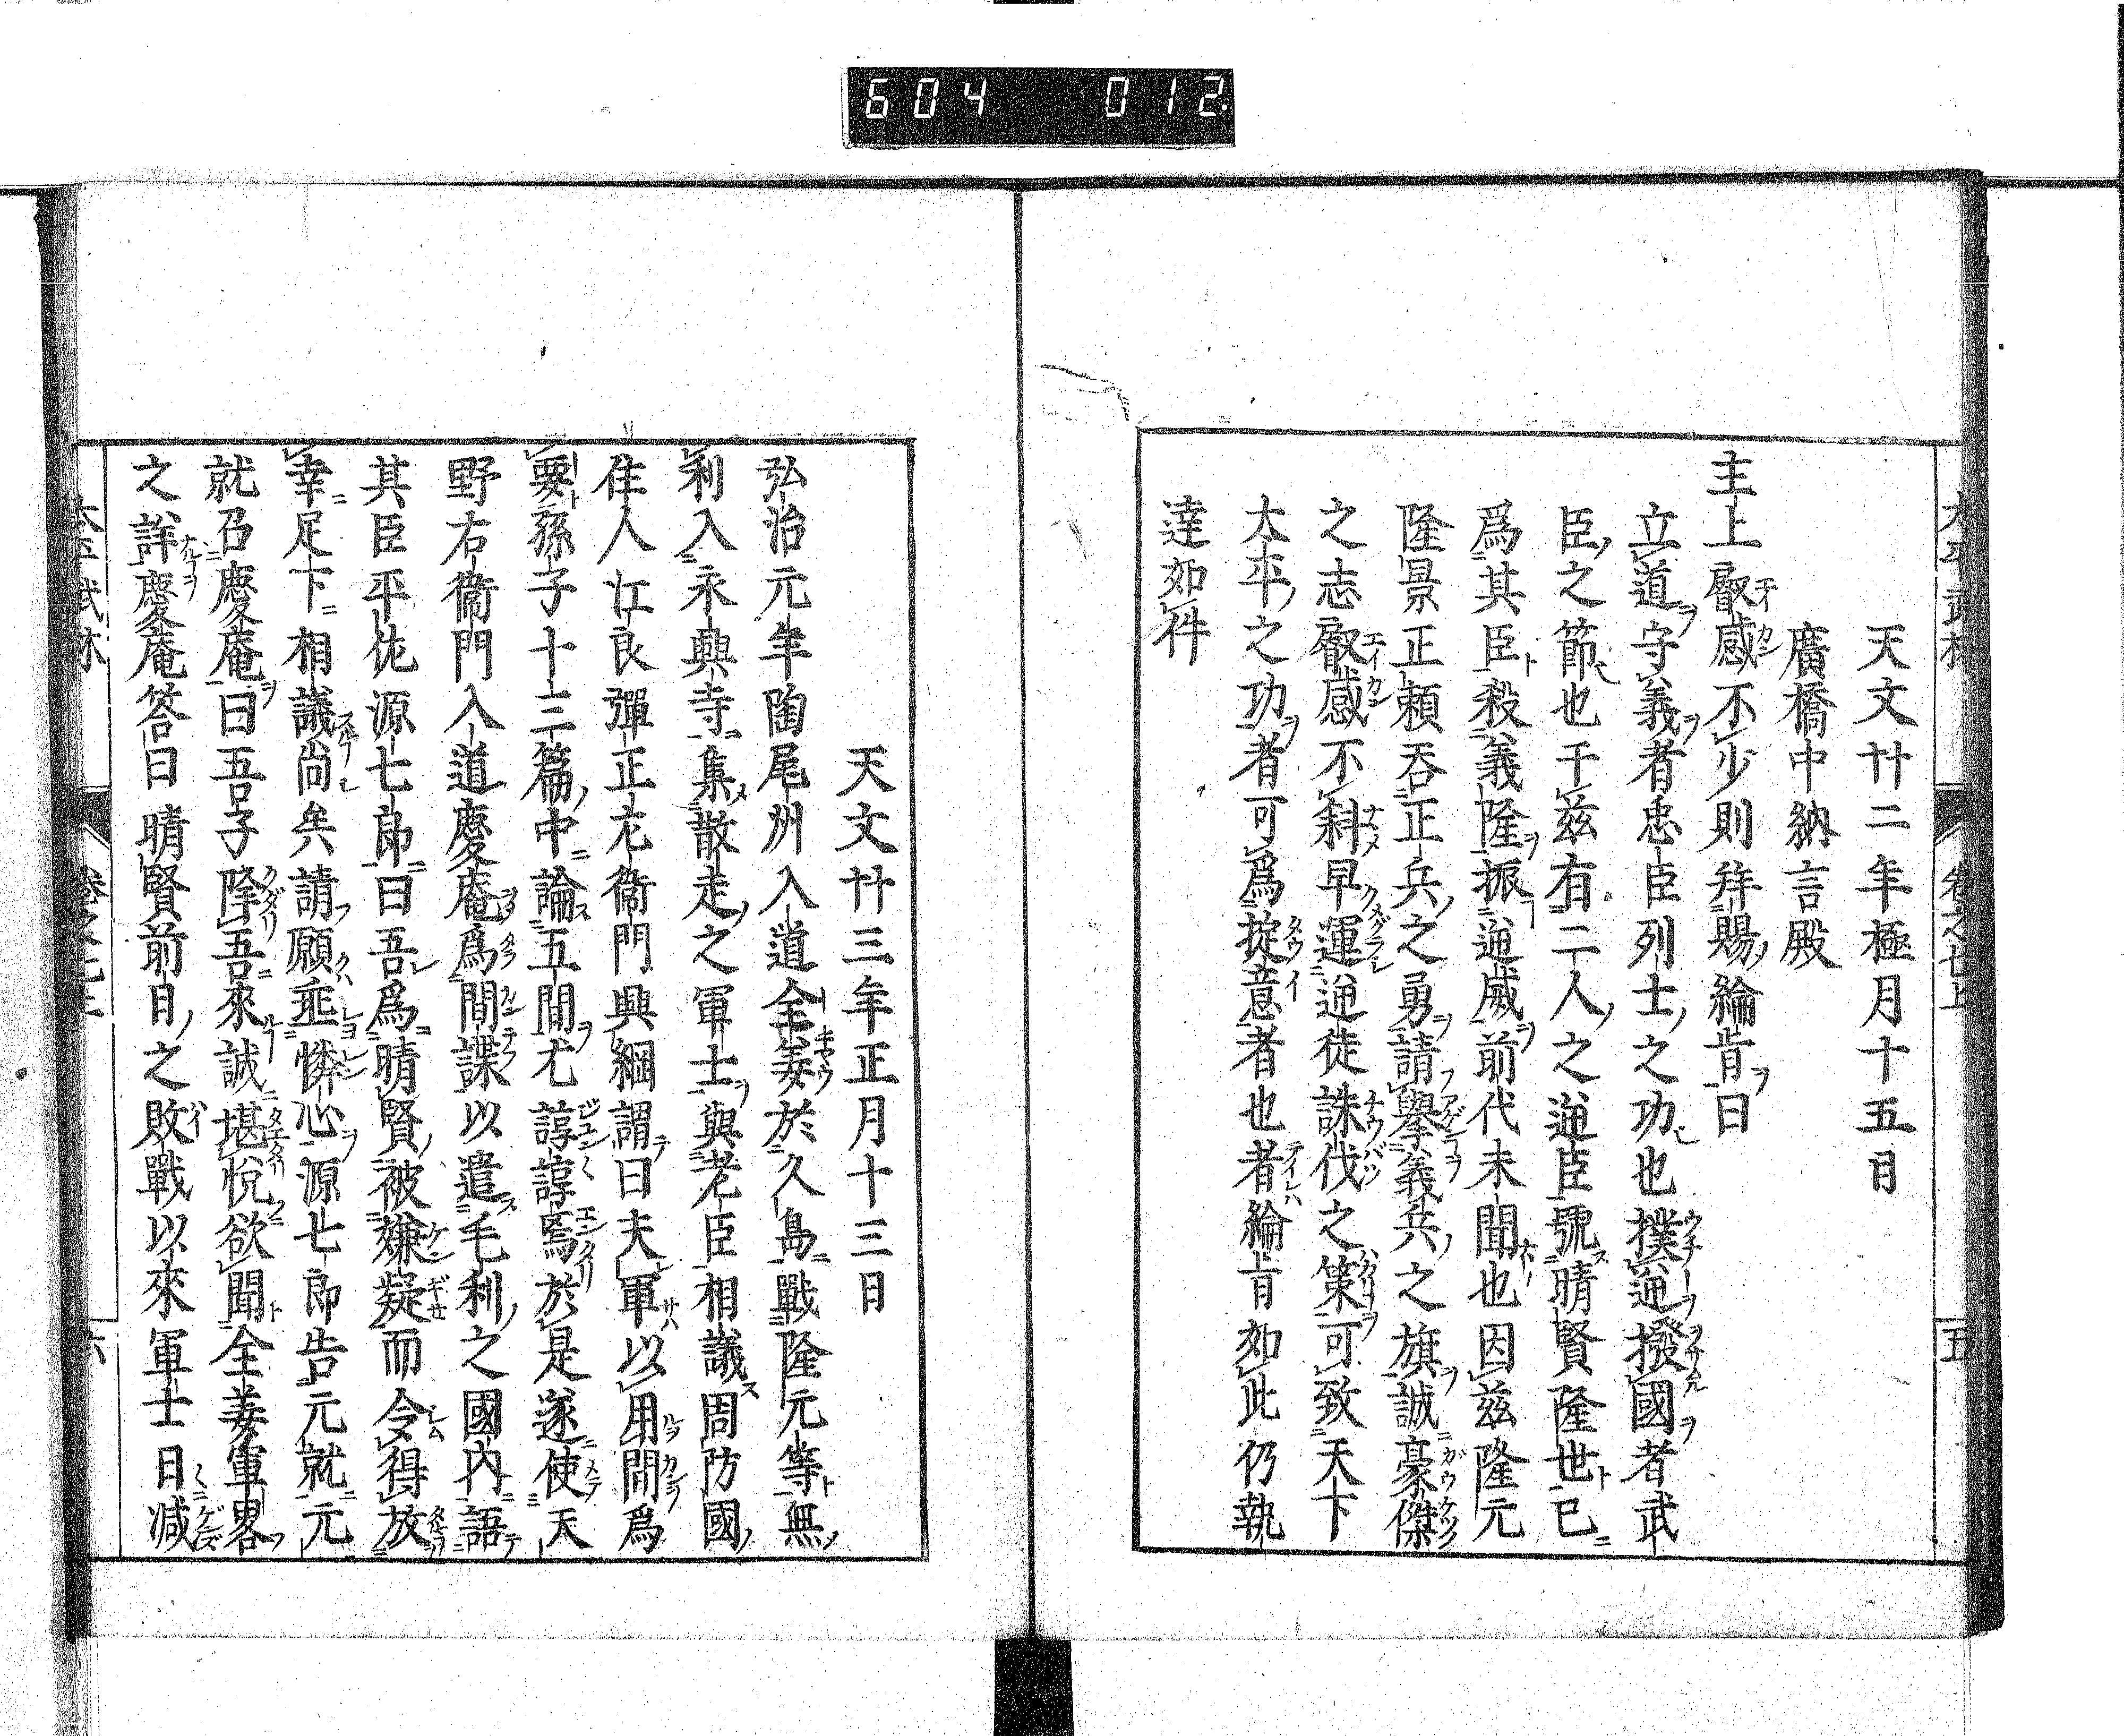 604 012
天文廿二年極月十五日
廣橋中納言殿
主上叡感不少則拜賜綸旨曰
立道守義者忠臣列士之功也撲逆撥國者武
臣之節也于兹有二人之逆臣號晴賢隆世已
爲其臣殺義隆振逆威前代未聞也因兹隆元
隆景正頼吞正兵之勇請擧義兵之旗誠豪傑
之志叡感不斜早運逆徒誅伐之策可致天下
太平之功者可爲掟意者也者綸旨如此仍執
達如件
五
天文廿三年正月十三日
弘治元年陶尾州入道全姜於久島戰隆元等無
利入永興寺集散走之軍士與老臣相議周防國
住人江良彈正左衞門興綱謂曰夫軍以用間爲
要孫子十三篇中論五間尤諄諄焉於是遂使天
野右衞門入道慶庵爲間諜以遣毛利之國内語
其臣平佐源七郎曰吾爲晴賢被嫌疑而令得放
幸足下相議尚矣請願垂憐心源七郎告元就元
就召慶庵曰吾子降吾來誠堪悦欲聞全姜軍畧
之詳慶庵答曰晴賢前日之敗戰以來軍士日減
六